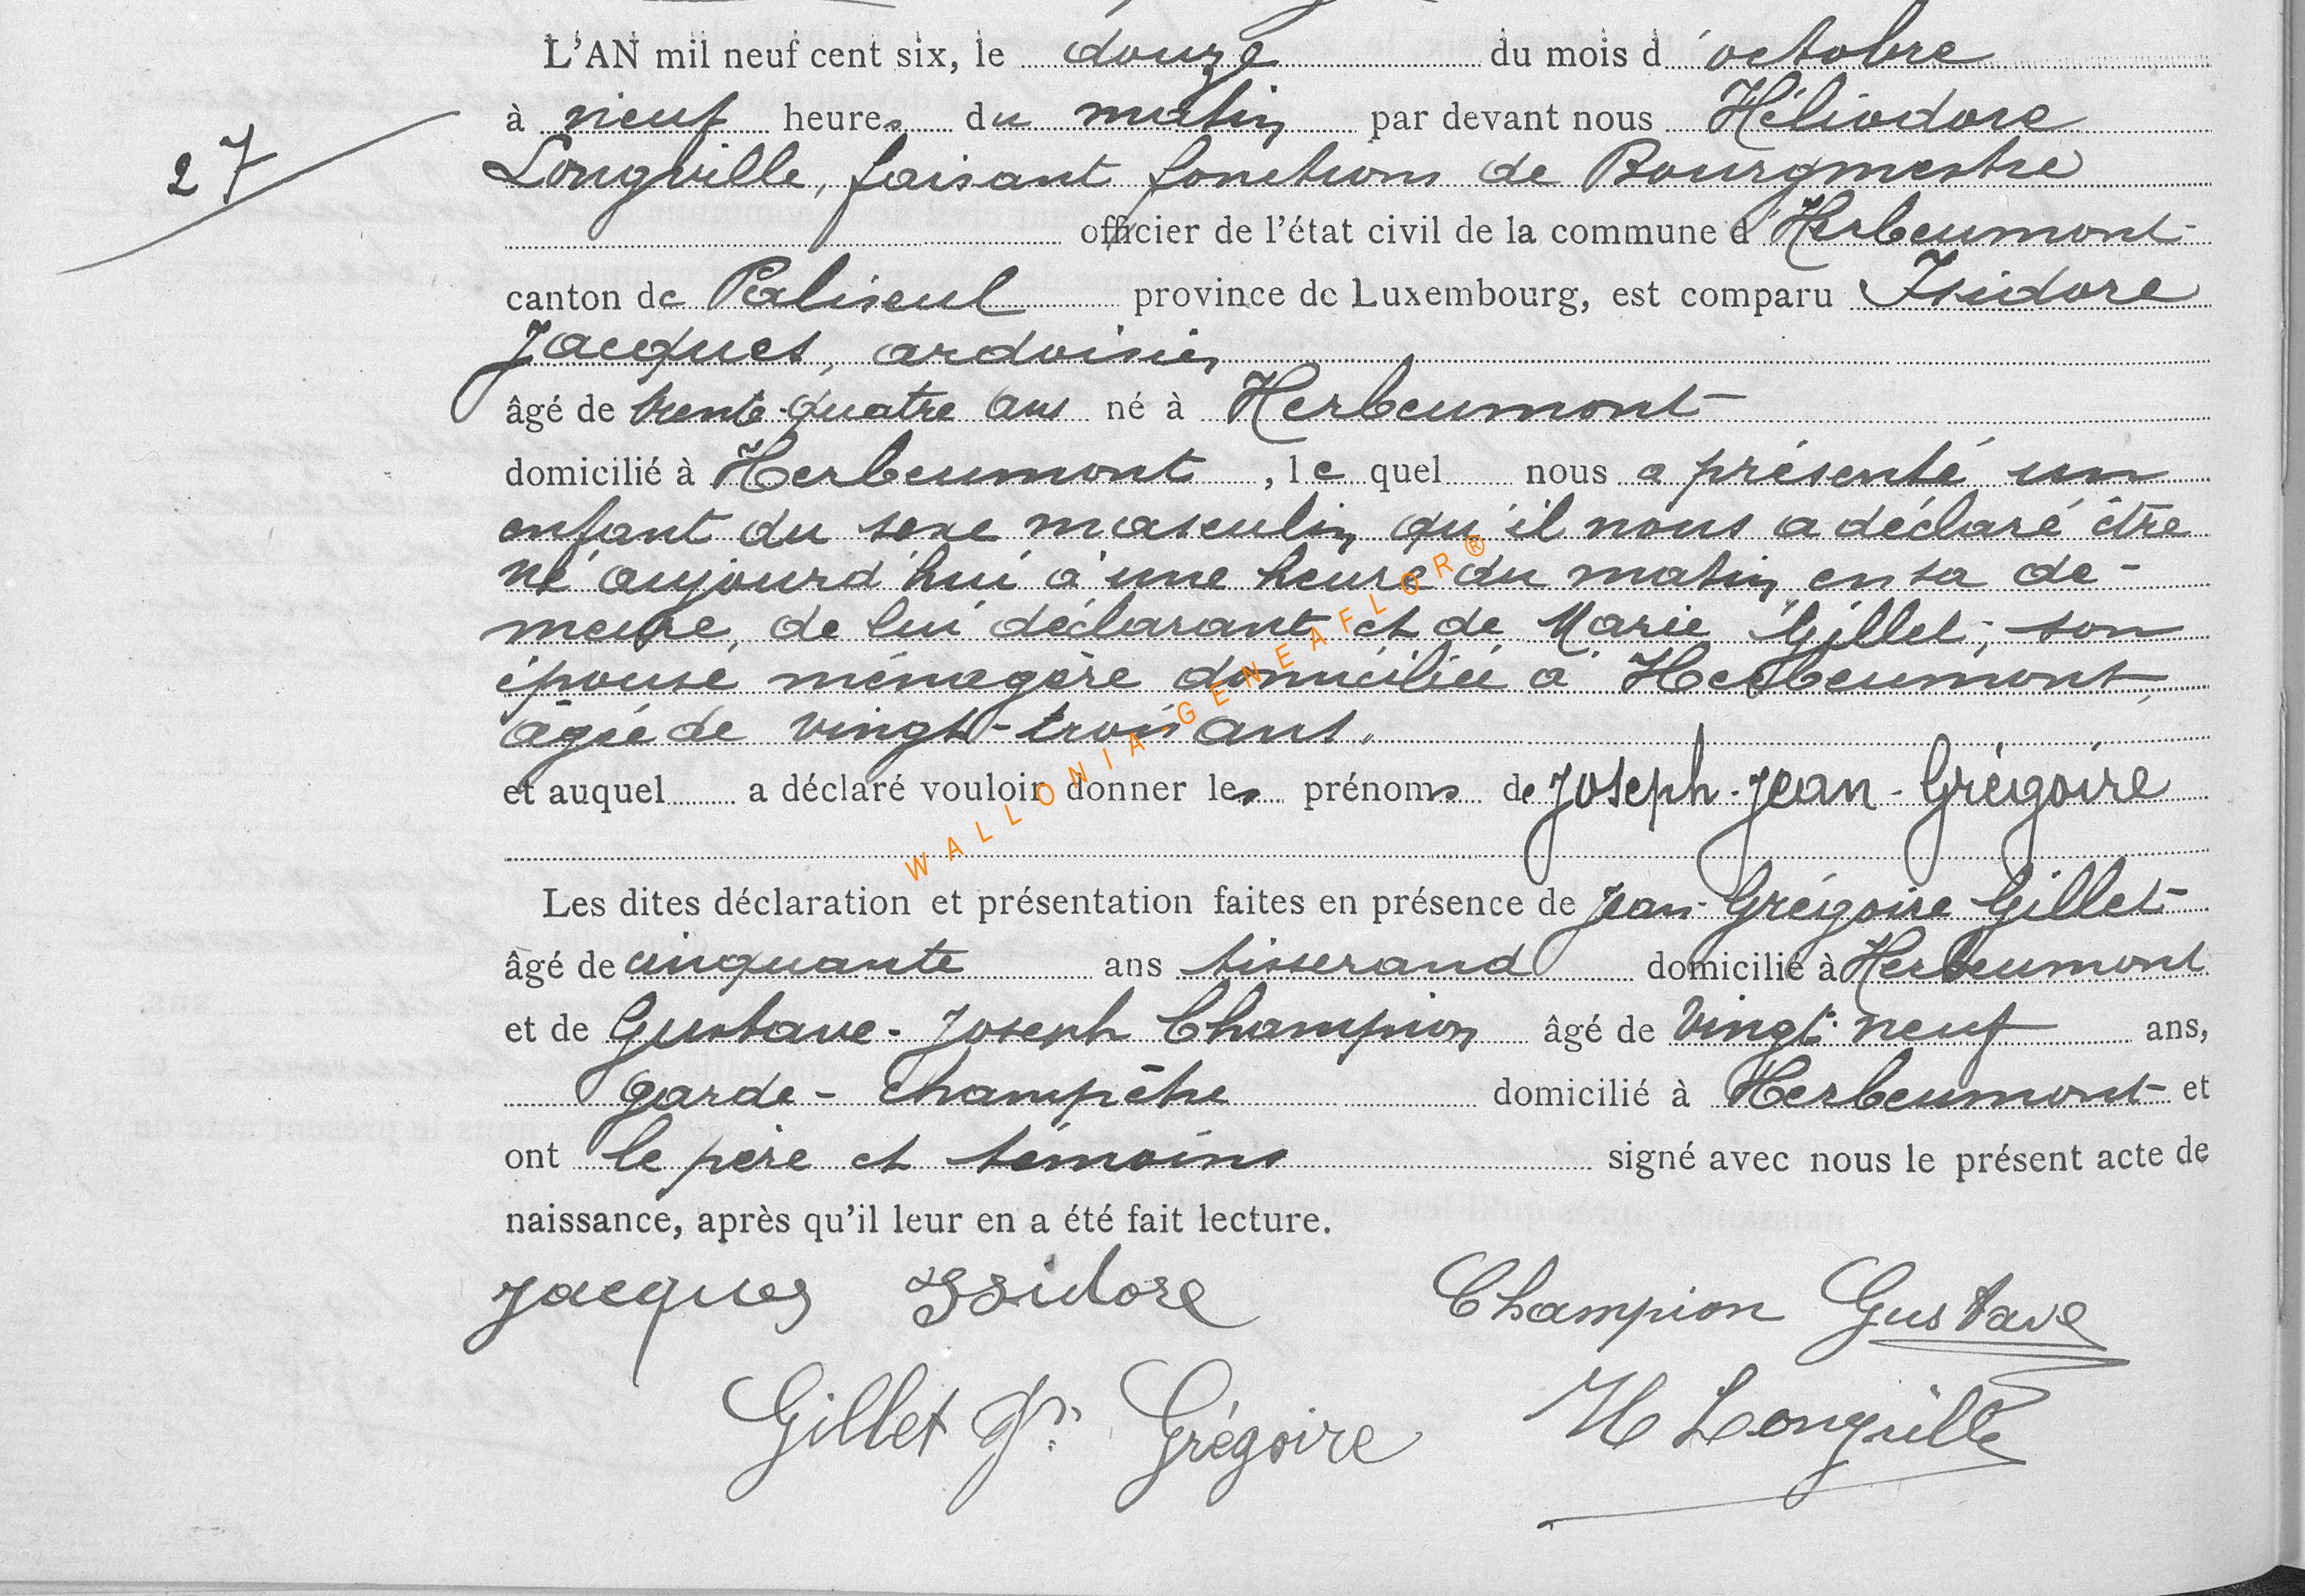 L'AN mil neuf cent six, le douze du mois d'octobre
à neuf heures du matin par devant nous Héliodore
27
Longville, faisant fonctions de Bourgmestre
officier de l'état civil de la commune d'Herbeumont
canton de Paliseul province de Luxembourg, est comparu Isidore
Jacques, ardoisier
âgé de trente-quatre ans né à Herbeumont
domicilié à Herbeumont, le quel nous a présenté un
enfant du sexe masculin qu'il nous a déclaré être
né aujourd'hui à une heure du matin en sa de-
meure, de lui déclarant et de Marie Gillet, son
épouse ménagère domiciliée à Herbeumont,
âgée de vingt-trois ans.
et auquel a déclaré vouloir donner les prénoms de Joseph-Jean-Grégoire
WALLONIA-GENEAFLOR®
Les dites déclaration et présentation faites en présence de Jean-Grégoire Gillet
âgé de cinquante ans tisserand domicilié à Herbeumont
et de Gustave-Joseph Champion âgé de vingt-neuf ans,
garde-champêtre domicilié à Herbeumont et
ont le père et témoins signé avec nous le présent acte de
naissance, après qu'il leur en a été fait lecture.
Jacques Isidore Champion Gustave
Gillet Jn Grégoire H Longville